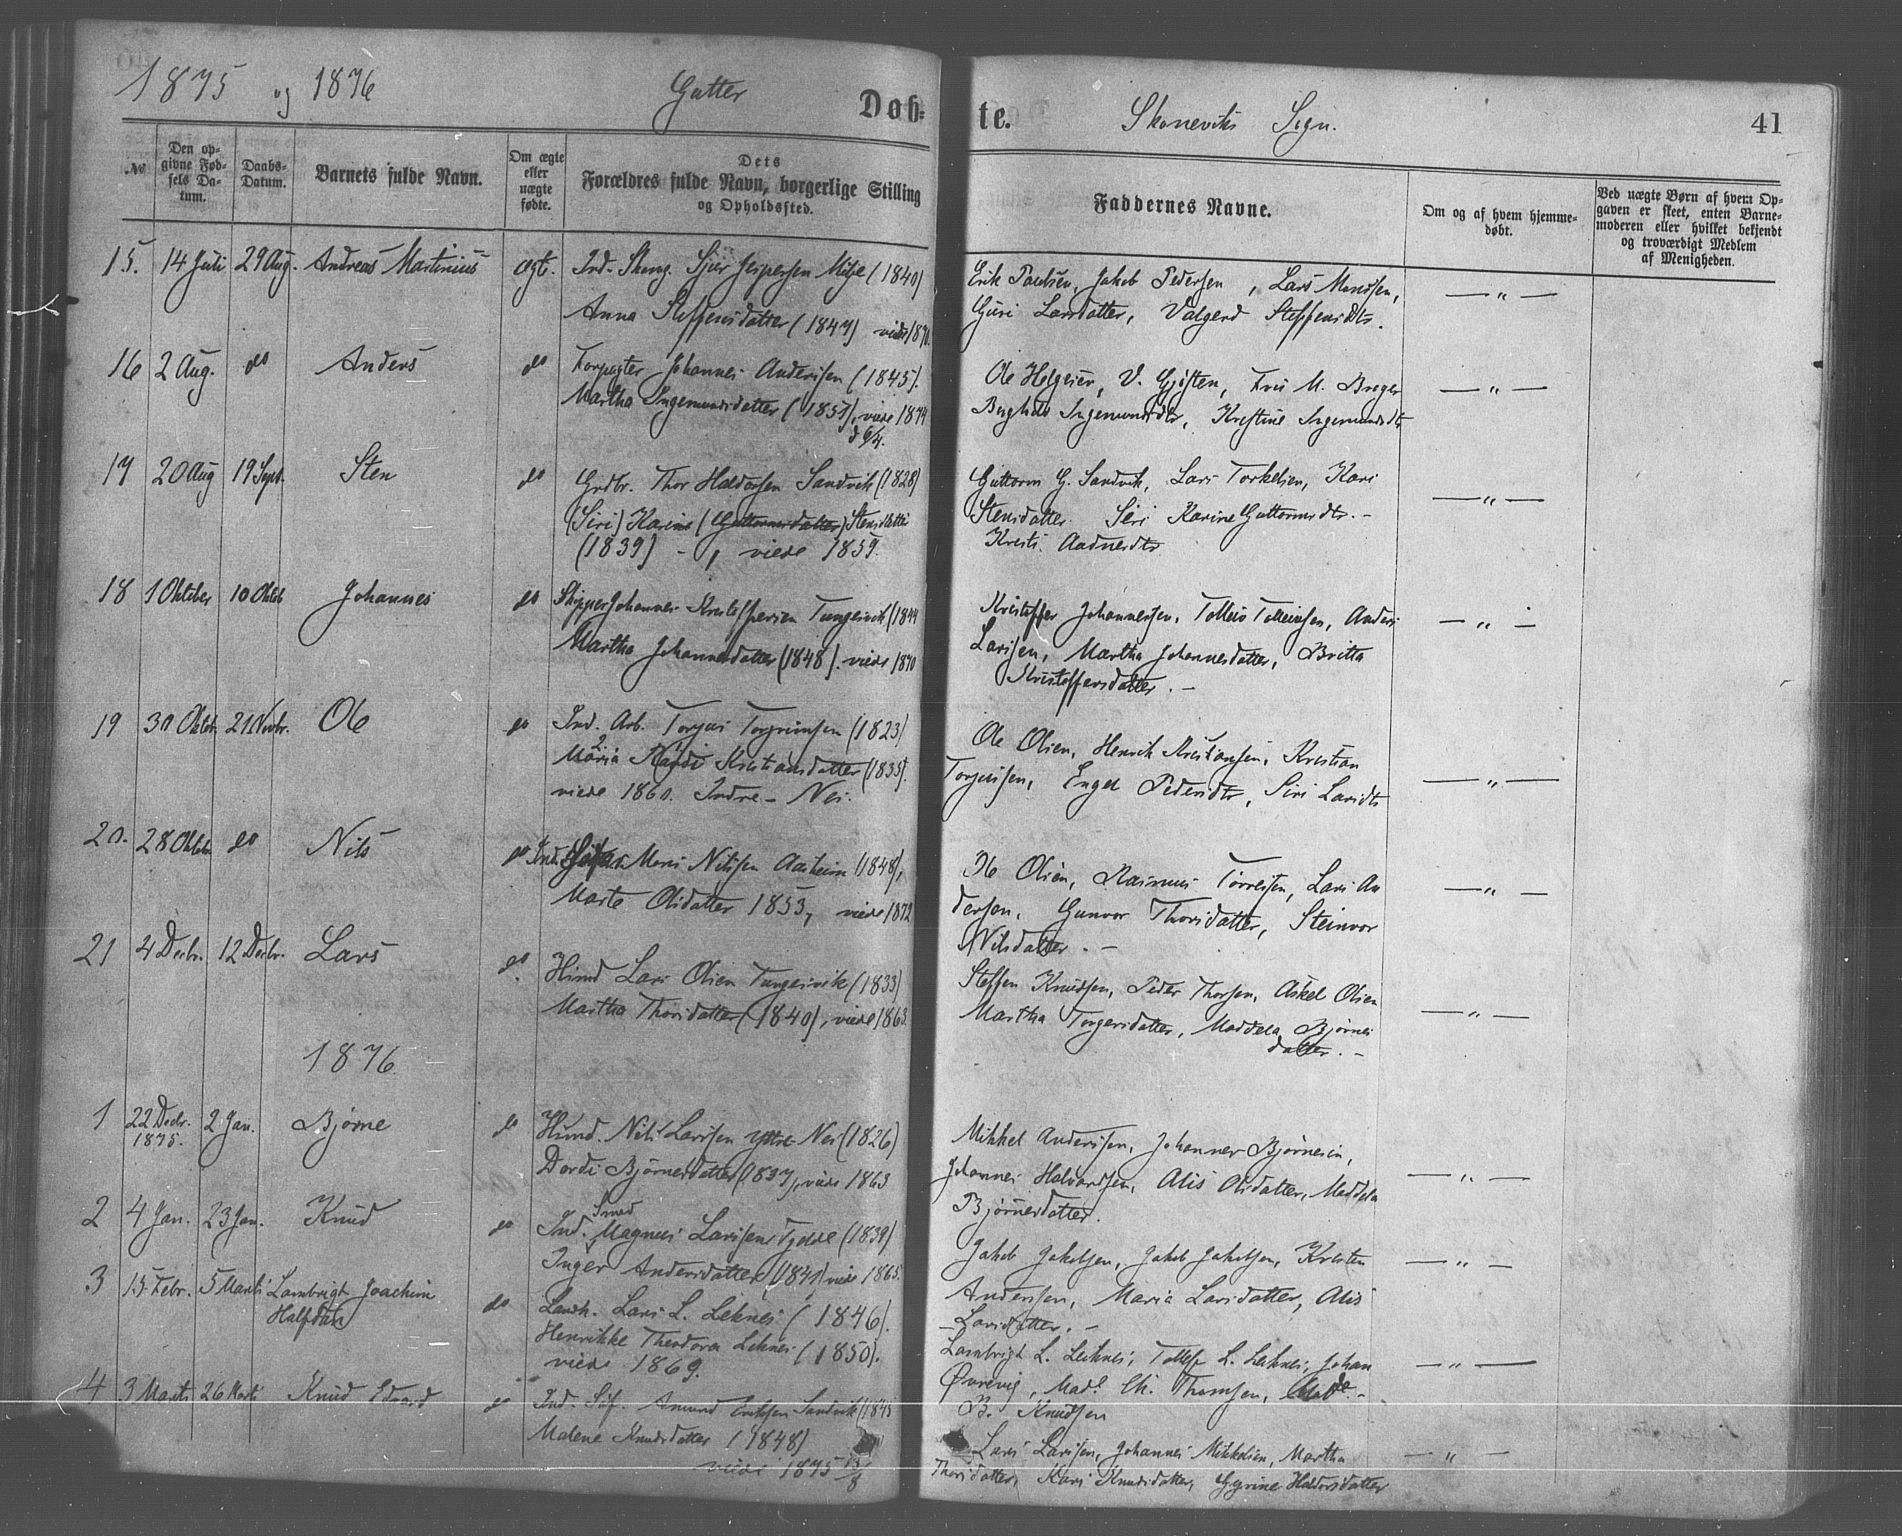 1875 og 1876 Gutter Døb=
№ Den opgivne Fødsels Datum. Daabs-Datum. Barnets fulde Navn. Om ægte eller uægte fødte. Dets Forældres fulde Navn, borgerlige Stilling og Opholdssted.
15. 14 Juli 29 Aug. Andreas Martinius ægt. Ind. Sjur Jespersen (1840)
Anna Steffensdatter (1847) viede 1870.
16 2 Aug. do Anders do Forpagter Johannes Andersen (1845).
Martha Ingemundsdatter (1851), viede 1874
d 6/4.
17 20 Aug 19 Sept. Sten do Grdbr. Thor Haldorsen Sandvik (1828)
(Siri) Karine (Guttormsdatter) Stensdatter
(1839) - , viede 1859.
18 1 Oktober 10 Oktob Johannes do Skipper Johannes Kristoffersen Tungesvik (1844
Martha Johannesdatter (1848). viede 1870
19 30 Oktbr. 21 Novbr. Ole do Ind. Arb. Torjus Torgrimsen (1823)
Maria Kristiansdatter (1835).
viede 1860. Indre - Nes.
20. 28 Oktob. do Nils do Ind. Mons Nilssen Aasheim (1848),
Marte Olsdatter 1853, viede 1872
21 4 Decbr. 12 Decbr. Lars do. Hmd Lars Olsen Tungesvik (1833)
Martha Thorsdatter (1840), viede 1863.
1876.
1 22 Decbr. 1875. 2 Jan. Bjørne do Hmd. Nils Larssen yttre Nes (1826)
Dordi Bjørnesdatter (1837), viede 1863
2 4 Jan. 23 Jan. Knud do Ind. Smed Magnus Larssen Tydde (1839)
Inger Andersdatter (1841) viede 1865.
3 15 Febr. 5 Marts Lambrigt Joachim Halfdan do Landh. Lars L. Leknes (1846).
Henrikke Theodora Leknes (1850).
viede 1869.
4 3 Marts 26 Marts Knud Edvard do Ind. Søf. Amund Eriksen Sandvik (1845
Malene Knudsdatter (1848)
viede 1875 13/8
te. Skoneviks Sogn. 41
Faddernes Navne. Om og af hvem hjemme-døbt. Ved uægte Børn af hvem Opgaven er skeet, enten Barnemoderen eller hvilket bekjendt og troværdigt Medlem af Menigheden.
Erik Paulsen, Jakob Pedersen, Lars Monssen, — " —
Guri Larsdatter, Valgerd Steffensdtr.
Ole Helgesen, V. Gjøsten, Frú M. Breger — " —
Berghild Ingemundsdtr, Kristine Ingemundsdtr
Guttorm G. Sandvik, Lars Torkelsen, Kari — " —
Stensdatter. Siri Karine Guttormsdtr. -
Kristi. Aadnesdtr
Kristoffer Johannessen, Tolleiv Tolleivsen, Anders — " —
Larssen, Martha Johannesdatter, Britta
Kristoffersdatter. -
Ole Olsen, Henrik Kristiansen, Kristian — " —
Torjussen, Engel Pedersdtr, Siri Larsdtr
Olsen, Rasmus Torressen, Lars An — " —
dersen, Gunvor Thorsdatter, Steinvor
Nilsdatter. -
Steffen Knudsen, Peder Thorsen, Askel Olsen — " —
Martha Torgersdatter, Maddela Bjørnes
datter. -
Mikkel Anderssen, Johannes Bjørnesen, — " —
Johannes Halvardsen, Alis Olsdatter, Maddela
Bjørnesdatter.
Jakob Jakobsen, Jakob Jakobsen, Kristen — " —
Anderssen, Maria Larsdatter, Alis
Larsdatter. -
Lambrigt L. Leknes, Tollef L. Leknes, Johan — " —
Øvrevig, Mad. Ch. Thomsen, Made. -
B. Knudsen
Lars Larssen, Johannes Mikkelsen, Martha — " —
Thorsdatter, Kari Knudsdatter, Gyrine Haldorsdatter